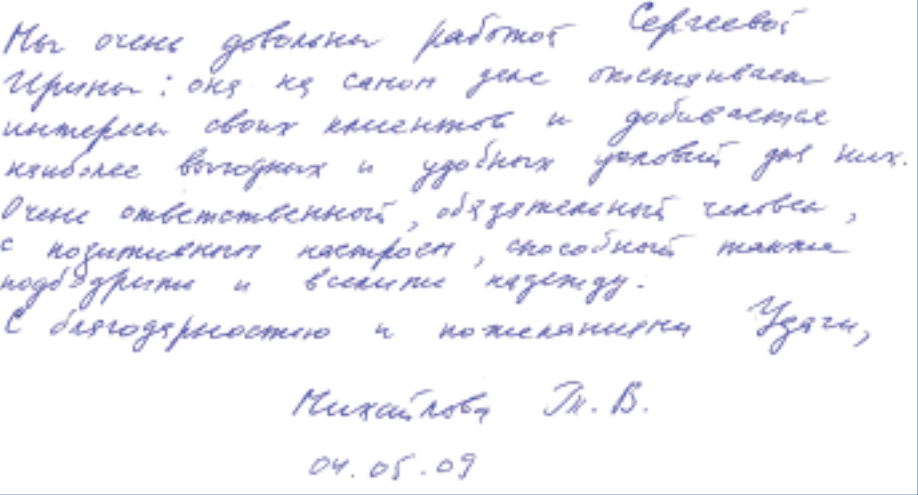 Мы очень довольны работой Сергеевой
Ирины: она на самом деле отстаивает
интересы своих клиентов и добивается
наиболее выгодных и удобных условий для них.
Очень ответственный, обязательный человек,
с позитивным настроем, способный также
подбодрить и вселить надежду.
С благодарностью и пожеланиями Удачи,
Михайлова Т. В.
04.05.09